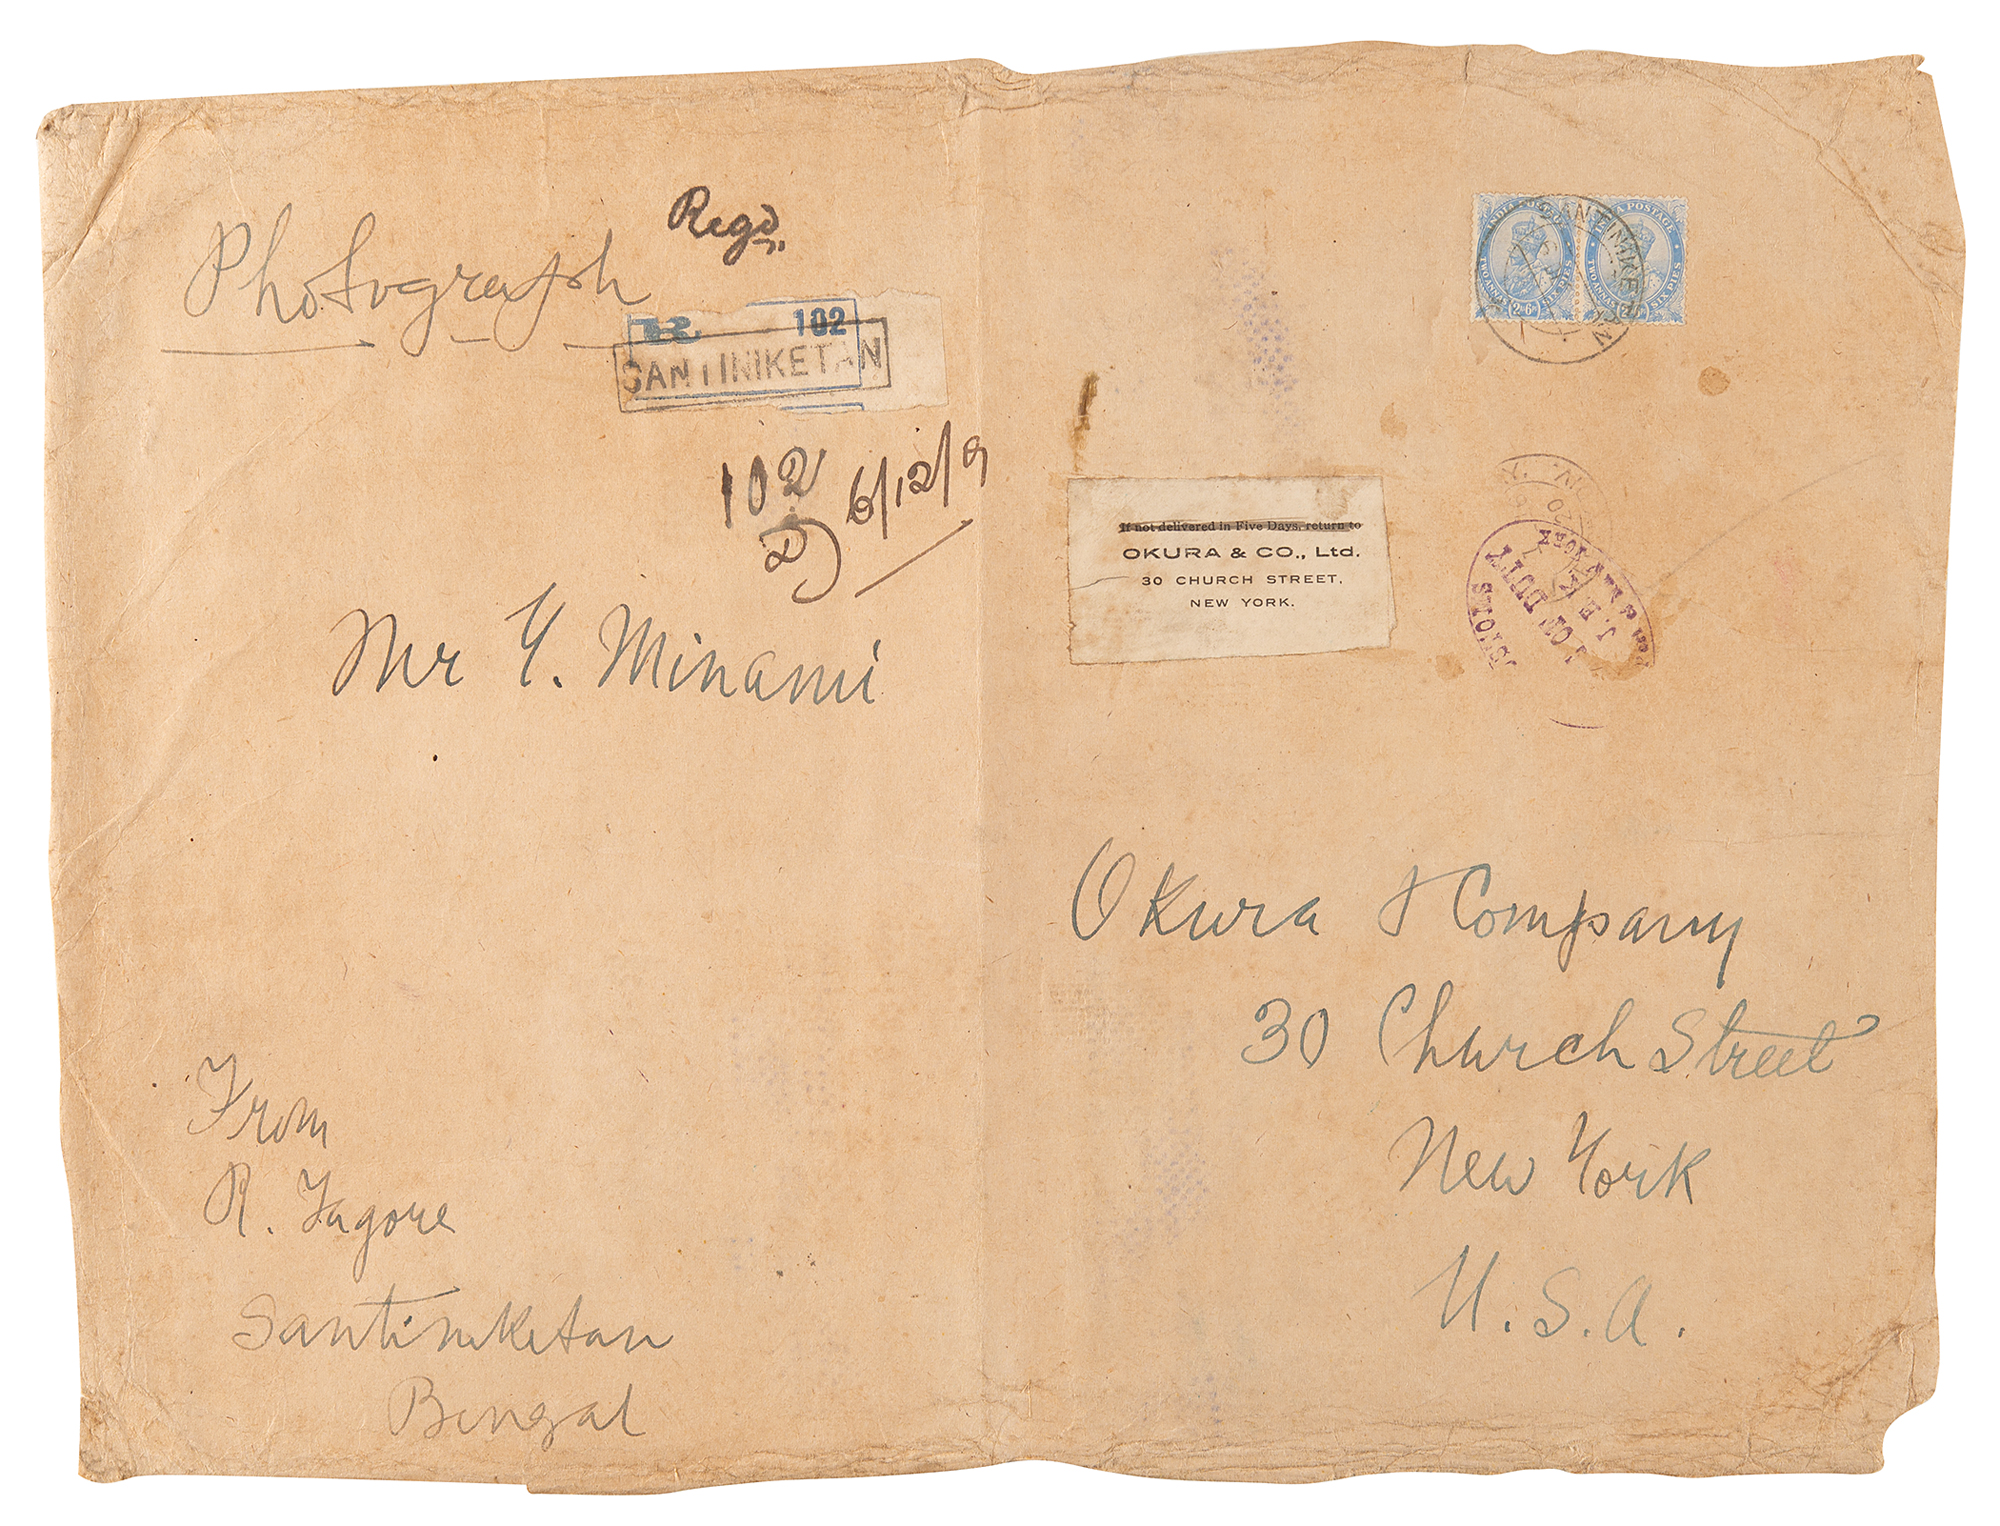 Photograph
Regd.
R 102
SANTINIKETAN
102
6/12/9
Mr Y. Minami
From
R. Tagore
Santiniketan
Bengal
INDIA POSTAGE
TWO ANNAS 2As6P SIX PIES
INDIA POSTAGE
TWO ANNAS 2As6P SIX PIES
SANTINIKETAN
If not delivered in Five Days, return to
OKURA & CO., Ltd.
30 CHURCH STREET,
NEW YORK.
N.Y.
ON DUTY
Okura & Company
30 Church Street
New York
U.S.A.